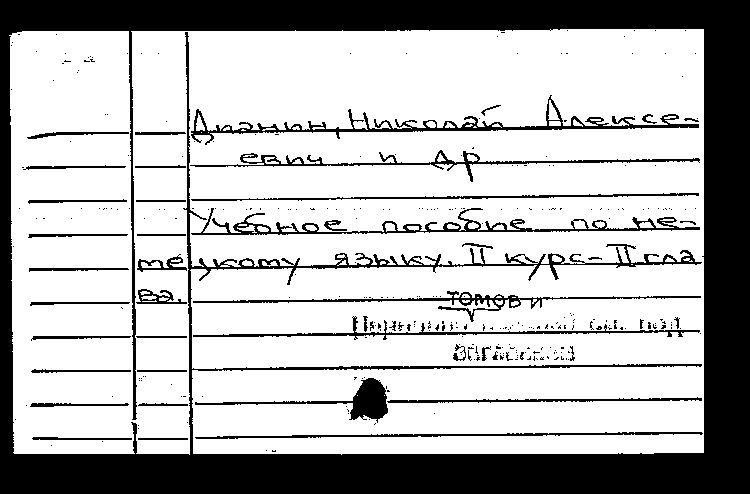 Дианин, Николай Алексе-
евич и др
Учебное пособие по не-
мецкому языку. II курс-II гла
ва.
томов и
см. под
заглавием